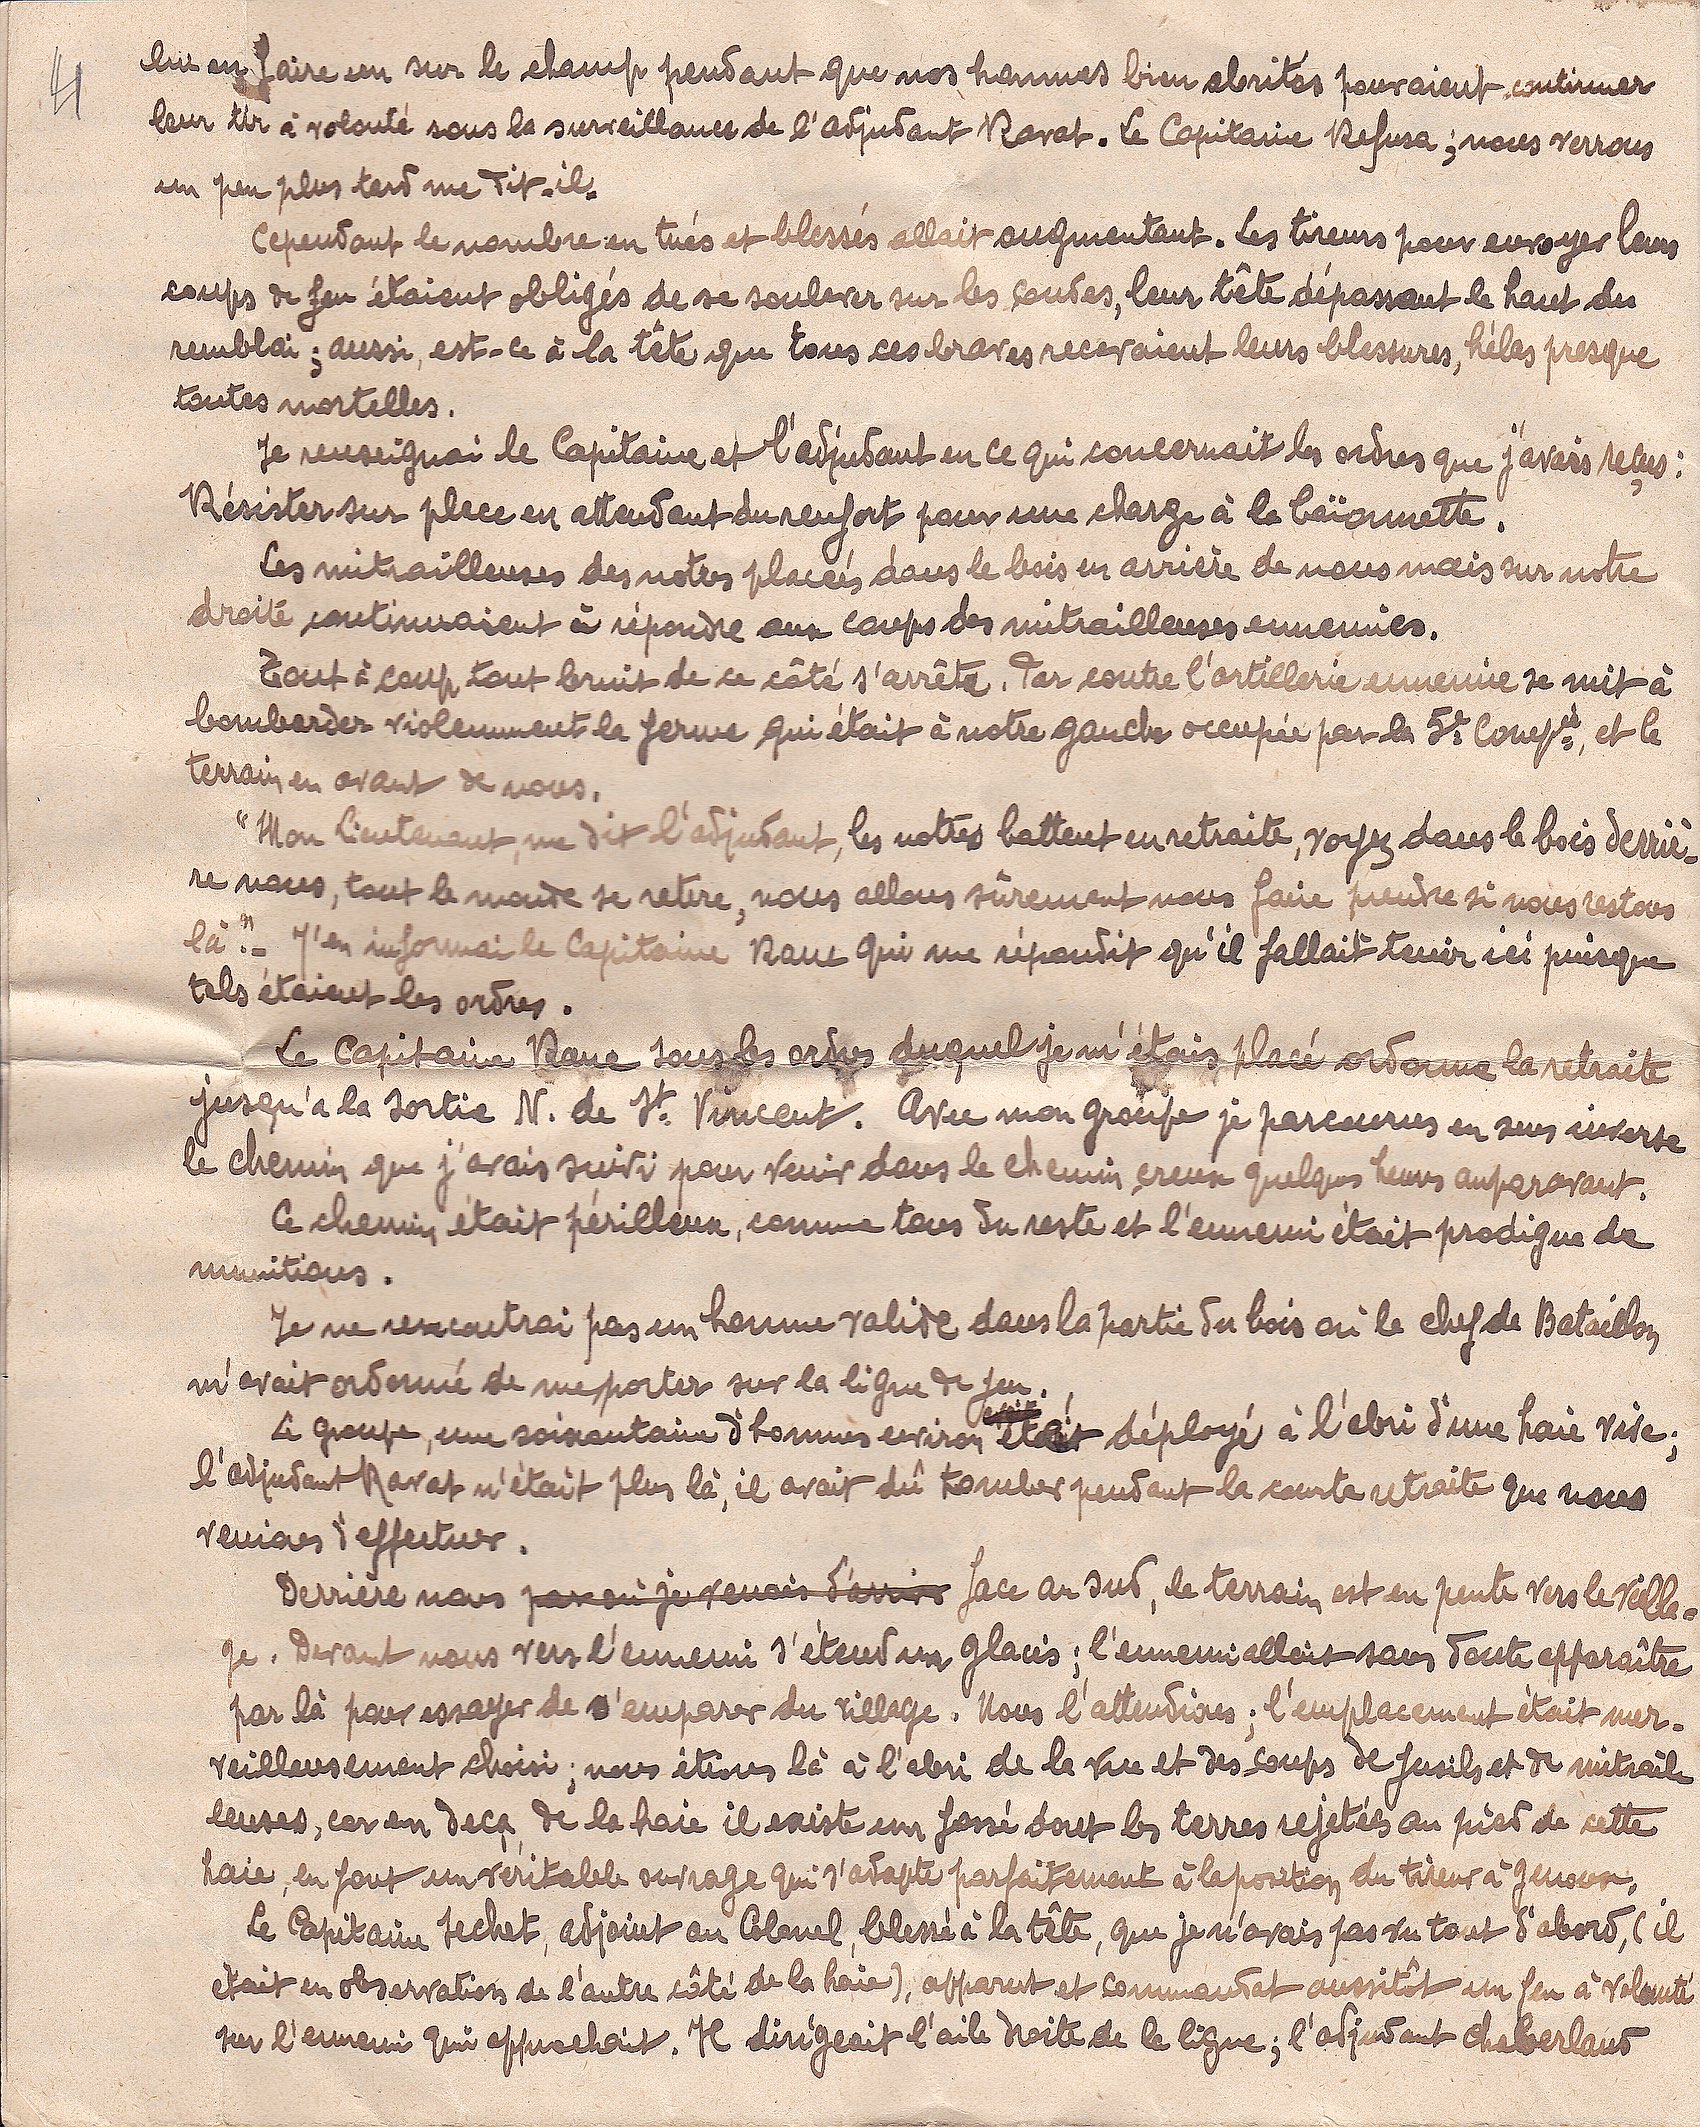 4
lui en faire un sur le champ pendant que nos hommes bien abrités pouvaient continuer
leur tir à volonté sous la surveillance de l'adjudant Ravat. Le Capitaine Refusa ; nous verrons
un peu plus tard me dit-il.
Cependant le nombre en tués et blessés allait augmentant. Les tireurs pour envoyer leurs
coups de feu étaient obligés de se soulever sur les coudes, leur tête dépassant le haut du
remblai ; aussi, est-ce à la tête que tous ces braves recevaient leurs blessures, hélas presque
toutes mortelles.
Je renseignai le Capitaine et l'adjudant en ce qui concernait les ordres que j'avais reçus :
Résister sur place en attendant du renfort pour une charge à la baïonnette.
Les mitrailleuses des notres placées dans le bois en arrière de nous mais sur notre
droite continuaient à répondre aux coups des mitrailleuses ennemies.
Tout à coup tout bruit de ce côté s'arrête. Par contre l'artillerie ennemie se mit à
bombarder violemment la ferme qui était à notre gauche occupée par la 5e Compie, et le
terrain en avant de nous.
"Mon Lieutenant, me dit l'adjudant, les notres battent en retraite, voyez dans le bois derriè-
re nous, tout le monde se retire, nous allons sûrement nous faire prendre si nous restons
là". - J'en informai le Capitaine Raux qui me répondit qu'il fallait tenir ici puisque
tels étaient les ordres.
Le Capitaine Raux sous les ordres duquel je m'étais placé ordonne la retraite
jusqu'à la sortie N. de St. Vincent. Avec mon groupe je parcourus en sens inverse
le chemin que j'avais suivi pour venir dans le chemin creux quelques heures auparavant.
Ce chemin était périlleux, comme tous du reste et l'ennemi était prodigue de
munitions.
Je ne rencontrai pas un homme valide dans la partie du bois où le chef de Bataillon
m'avait ordonné de me porter sur la ligne de feu.
Le groupe, une soixantaine d'hommes environ était déployé à l'abri d'une haie vive ;
l'adjudant Ravat n'était plus là, il avait dû tomber pendant la courte retraite que nous
venions d'effectuer.
Derrière nous par où je venais d'arriver face au sud, le terrain est en pente vers le villa-
ge. Devant nous vers l'ennemi s'étend un glacis ; l'ennemi allait sans doute apparaître
par là pour essayer de s'emparer du village. Nous l'attendions ; l'emplacement était mer-
veilleusement choisi ; nous étions là à l'abri de la vue et des coups de fusils et de mitrail-
leuses, car en deçà de la haie il existe un fossé dont les terres rejetées au pied de cette
haie, en font un véritable ouvrage qui s'adapte parfaitement à la position du tireur à genoux.
Le Capitaine Jechet, adjoint au Colonel, blessé à la tête, que je n'avais pas vu tout d'abord, (il
était en observation de l'autre côté de la haie), apparut et commandat aussitôt un feu à volonté
sur l'ennemi qui approchait. Il dirigeait l'aile droite de la ligne ; l'adjudant Chaberland